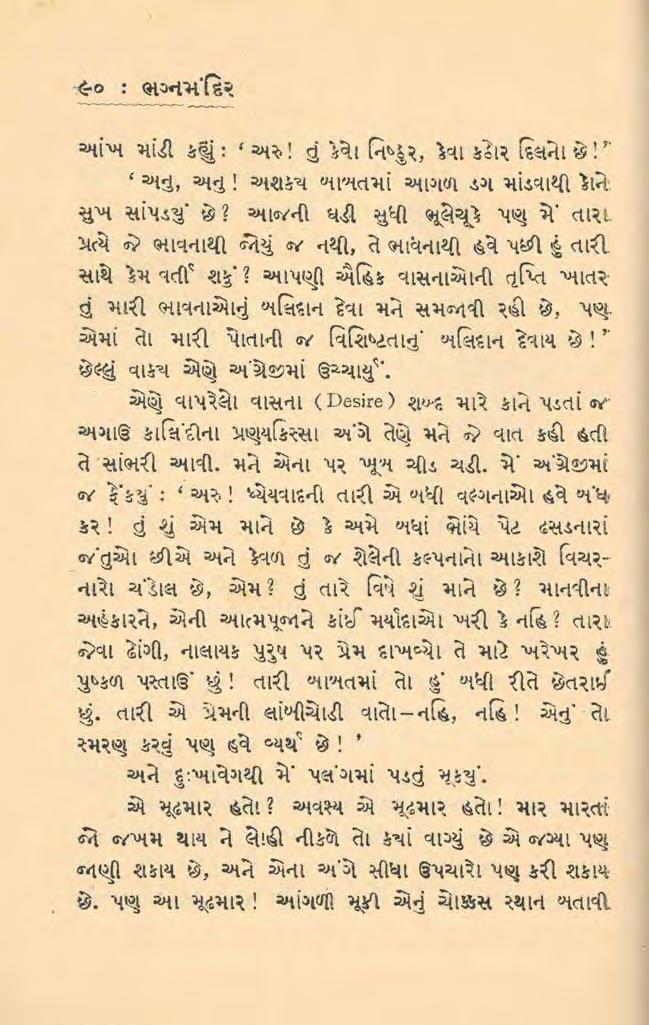 ૯૦ : ભગ્નમંદિર
આંખ માંડી કહ્યું : ‘ અરુ! તું કેવો નિષ્ઠુર, કેવા કઠોર દિલનો છે!”
‘ અનુ, અનુ! અશક્ય બાબતમાં આગળ ડગ માંડવાથી કોને
સુખ સાંપડયું છે? આજની ઘડી સુધી ભૂલેચૂકે પણ મેં તારા
પ્રત્યે જે ભાવનાથી જોયું જ નથી, તે ભાવનાથી હવે પછી હું તારી
સાથે કેમ વર્તી શકું? આપણી ઐહિક વાસનાઓની તૃપ્તિ ખાતર
તું મારી ભાવનાઓનું બલિદાન દેવા મને સમજાવી રહી છે, પણ
એમાં તો મારી પોતાની જ વિશિષ્ટતાનું બલિદાન દેવાય છે!’
છેલ્લું વાક્ય એણે અંગ્રેજીમાં ઉચ્ચાર્યું.
એણે વાપરેલો વાસના (Desire) શબ્દ મારે કાને પડતાં જ
અગાઉ કાલિંદીના પ્રણયકિસ્સા અંગે તેણે મને જે વાત કહી હતી
તે સાંભરી આવી. મને એના પર ખૂબ ચીડ ચડી. મેં અંગ્રેજીમાં
જ ફેંકયું : ‘ અરુ! ધ્યેયવાદની તારી એ બધી વલ્ગનાઓ હવે બંધ
કર! તું શું એમ માને છે કે અમે બધાં ભોંયે પેટ ઢસડનારાં
જંતુઓ છીએ અને કેવળ તું જ શેલેની કલ્પનાનો આકાશે વિચર-
નારો ચંડોલ છે, એમ? તું તારે વિષે શું માને છે? માનવીના
અહંકારને, એની આત્મપૂજાને કાંઈ મર્યાદાઓ ખરી કે નહિ? તારા
જેવા ઢોંગી, નાલાયક પુરુષ પર પ્રેમ દાખવ્યો તે માટે ખરેખર હું
પુષ્કળ પસ્તાઉં છું! તારી બાબતમાં તો હું બધી રીતે છેતરાઈ
છું. તારી એ પ્રેમની લાંબીચોડી વાતો–નહિ, નહિ! એનું તો
સ્મરણ કરવું પણ હવે વ્યર્થ છે!’
અને દુઃખાવેગથી મેં પલંગમાં પડતું મૂકયું.
એ મૂઢમાર હતો? અવશ્ય એ મૂઢમાર હતો! માર મારતાં
જો જખમ થાય ને લોહી નીકળે તો કયાં વાગ્યું છે એ જગ્યા પણ
જાણી શકાય છે, અને એના અંગે સીધા ઉપચારો પણ કરી શકાય
છે. પણ આ મૂઢમાર! આંગળી મૂકી એનું ચોક્કસ સ્થાન બતાવી